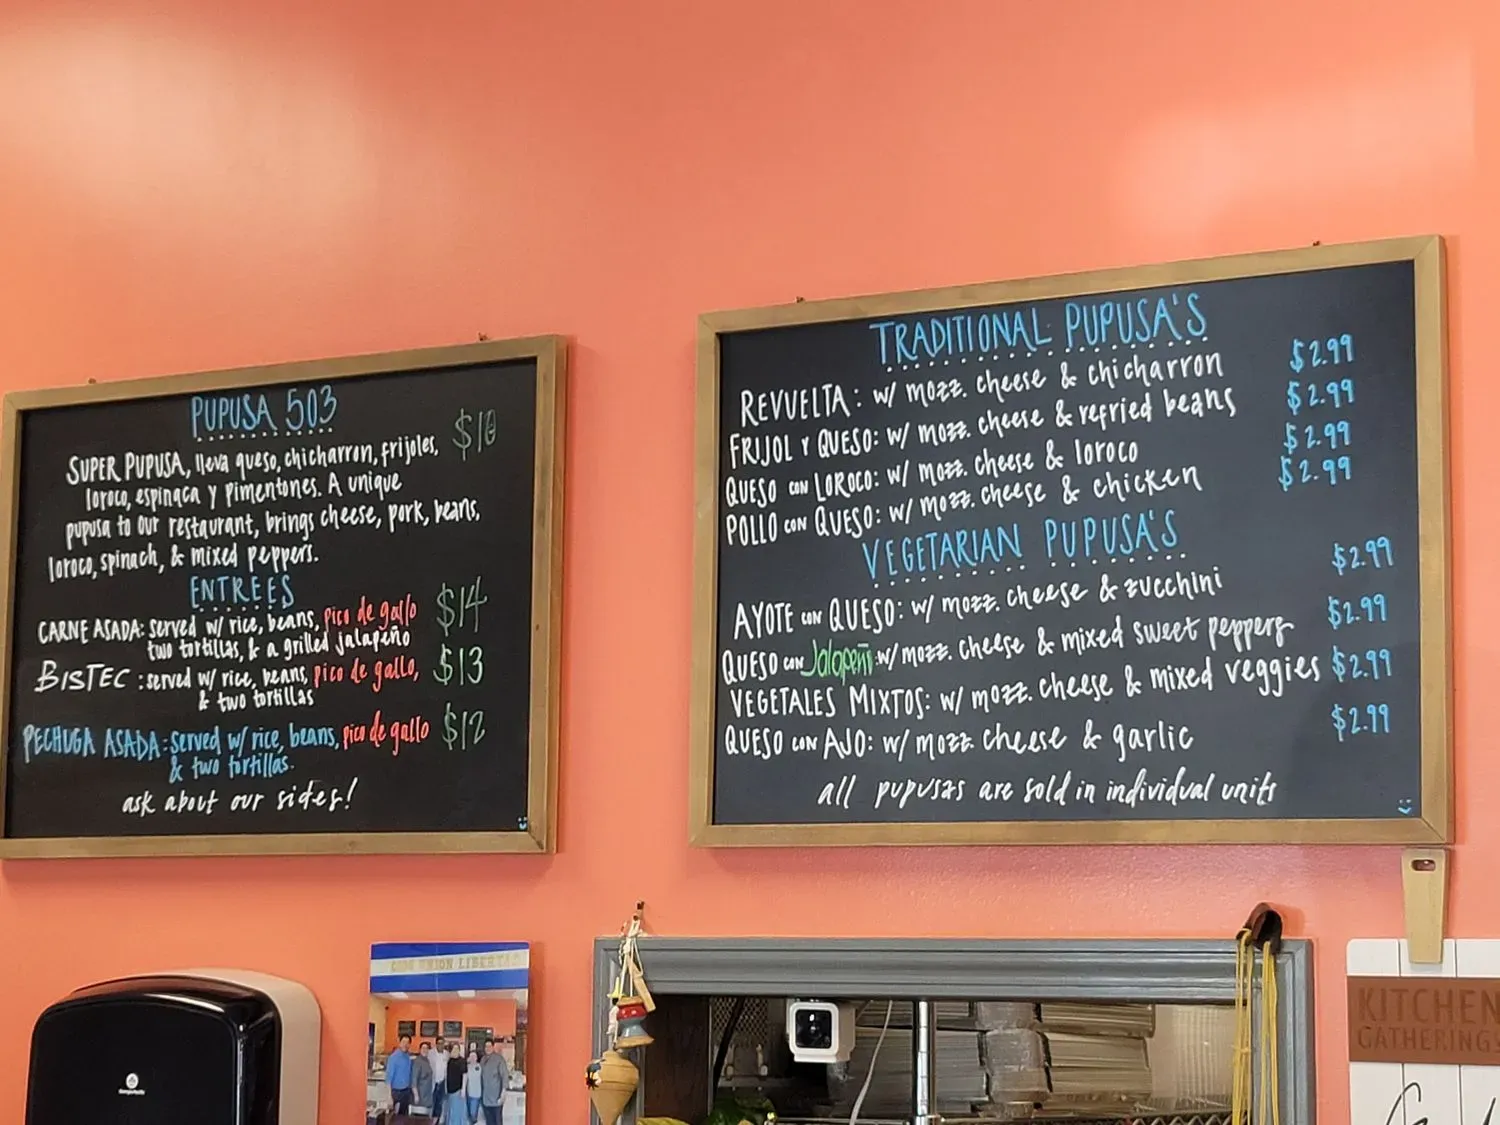 PUPUSA 503
SUPER PUPUSA, lleva queso, chicharron, frijoles, $10
loroco, espinaca y pimentones. A unique
pupusa to our restaurant, brings cheese, pork, beans,
loroco, spinach, & mixed peppers.
ENTREES
CARNE ASADA: served w/ rice, beans, pico de gallo $14
two tortillas, & a grilled jalapeño
BISTEC: served w/ rice, beans, pico de gallo, $13
& two tortillas
PECHUGA ASADA: served w/ rice, beans, pico de gallo $12
& two tortillas.
ask about our sides!
TRADITIONAL PUPUSA'S
REVUELTA: w/ mozz. cheese & chicharron $2.99
FRIJOL Y QUESO: w/ mozz. cheese & refried beans $2.99
QUESO CON LOROCO: w/ mozz. cheese & loroco $2.99
POLLO CON QUESO: w/ mozz. cheese & chicken $2.99
VEGETARIAN PUPUSA'S
AYOTE CON QUESO: w/ mozz. cheese & zucchini $2.99
QUESO CON Jalapeñ: w/ mozz. cheese & mixed sweet peppers $2.99
VEGETALES MIXTOS: w/ mozz. cheese & mixed veggies $2.99
QUESO CON AJO: w/ mozz. cheese & garlic $2.99
all pupusas are sold in individual units
UNION LIBERTAD
KITCHEN
GATHERINGS